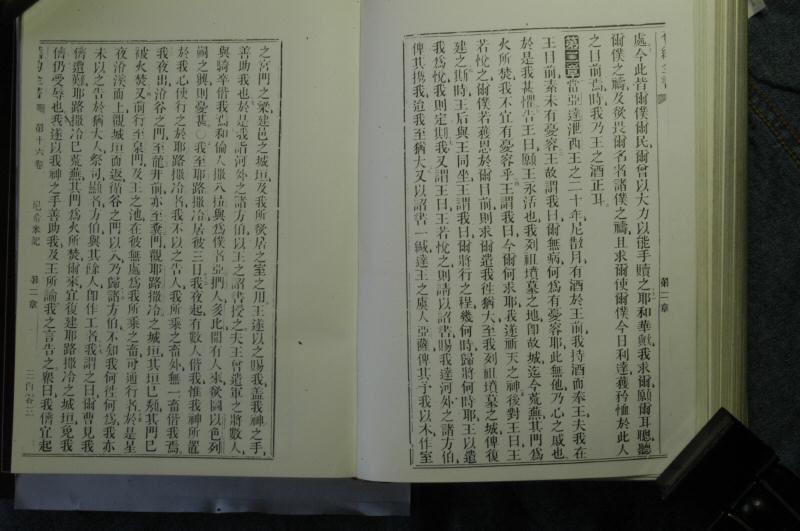 處、今此皆爾僕爾民、爾曾以大力以能手贖之、耶和華歟、我求爾、願爾耳聰聽
爾僕之禱、及欲畏爾名者諸僕之禱、且求爾使爾僕今日利達、獲矜恤於此人
之目前焉、時我乃王之酒正耳、
第二章 當亞達泄西王之二十年尼散月、有酒於王前、我持酒而奉王、夫我在
王目前、素未有憂容、王故謂我曰、爾無病、何為有憂容耶、此無他、乃心之慼也、
於是我甚懼、告王曰、願王永活也、我列祖墳墓之地、即故城、迄今荒蕪、其門為
火所焚、我不宜有憂容乎、王謂我曰、今爾何求耶、我遂祈天之神、後對王曰、王
若悅之、爾僕若獲恩於爾目前、則求爾遣我往猶大、至我列祖墳墓之城、俾復
建之、斯時王后與王同坐、王謂我曰、爾將行之程幾何、時歸將何時耶、王以遣
我為悅、我則定期、我又謂王曰、王若悅之、則請以詔書賜我、達河外之諸方伯、
俾其攜我、迨我至猶大、又以詔書一緘、達王之虞人亞薩、俾其予我以木、作室
第一章
之宮門之梁、建邑之城垣、及我所欲居之室之用、王遂以之賜我、蓋我神之手、
善助我也、於是我詣河外之諸方伯、以王之詔書授之、夫王曾遣軍之將數人、
與騎卒偕我焉、和倫人撒八拉、與為僕者亞捫人多比、聞有人來、欲圖以色列
嗣之興、則憂甚、○我至耶路撒冷、居彼三日、我夜起、有數人偕我、惟我神所置
於我心、使行之於耶路撒冷者、我不以之告人、我所乘之畜外、無一畜偕我焉、
我夜出谷之門、至龍井前、亦至糞門、觀耶路撒冷之城垣、其垣已頹、其門已
被火焚、又前行至泉門、及王之池、在彼無處為我所乘之畜可通行者、於是星
夜沿溪而上、觀城垣而返、谷之門以入、乃歸、諸方伯不知我何往何為、我亦
未以之告於猶大人、祭司、顯名、方伯、與其餘人、即作工者、我謂之曰、爾曹見我
儕遭難、耶路撒冷已荒蕪、其門為火所焚、爾來、宜復建耶路撒冷之城垣、免我
儕仍受辱也、我遂以我神之手善助我、及王所諭我之言告之、眾曰、我儕宜起
第十六卷 尼希米記 第二章